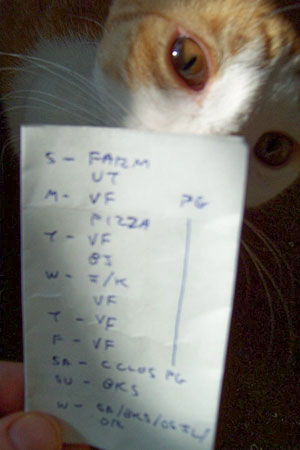 S - FARM
UT
M - VF PG
PIZZA
T - VF
BJ
W - F/K
VF
T - VF
F - VF
SA - CCLUB PG
SU - BKS
W - SA/BKS/